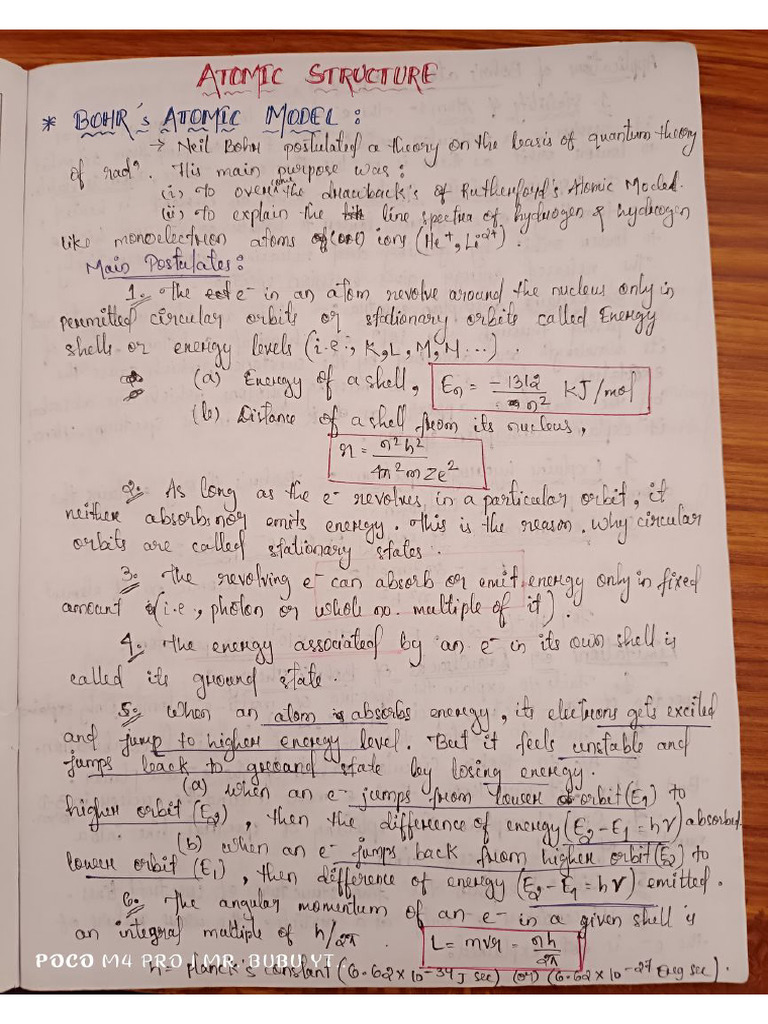 ATOMIC STRUCTURE
* BOHR's ATOMIC MODEL :
→ Neil Bohr postulated a theory on the basis of quantum theory
of radⁿ. His main purpose was :
(i) To overcome the drawback's of Rutherford's Atomic Model.
(ii) To explain the line spectra of hydrogen & hydrogen
like monoelectron atoms (or) ions (He⁺, Li²⁺) .
Main Postulates :
1. The e⁻ in an atom revolve around the nucleus only in
permitted circular orbits or stationary orbits called Energy
shells or energy levels (i.e., K, L, M, N ...) .
(a) Energy of a shell, Eₙ = -1312/n² KJ/mol
(b) Distance of a shell from its nucleus,
r = n²h²/4π²mZe²
2. As long as the e⁻ revolves in a particular orbit, it
neither absorbs nor emits energy. This is the reason. why circular
orbits are called stationary states.
3. The revolving e⁻ can absorb or emit energy only in fixed
amount (i.e., photon or whole no. multiple of it) .
4. The energy associated by an e⁻ in its own shell is
called its ground state.
5. When an atom absorbs energy, its electrons gets excited
and jump to higher energy level. But it feels unstable and
jumps back to ground state by losing energy.
(a) when an e⁻ jumps from lower orbit (E₁) to
higher orbit (E₂) , then the difference of energy (E₂ - E₁ = hν) absorbed.
(b) when an e⁻ jumps back from higher orbit (E₂) to
lower orbit (E₁) , then difference of energy (E₂ - E₁ = hν) emitted.
6. The angular momentum of an e⁻ in a given shell is
an integral multiple of h/2π. L = mvr = nh/2π
h = Planck's constant (6.62 × 10⁻³⁴ J sec) (or) (6.62 × 10⁻²⁷ Erg sec) .
POCO M4 PRO | MR. BUBU YT